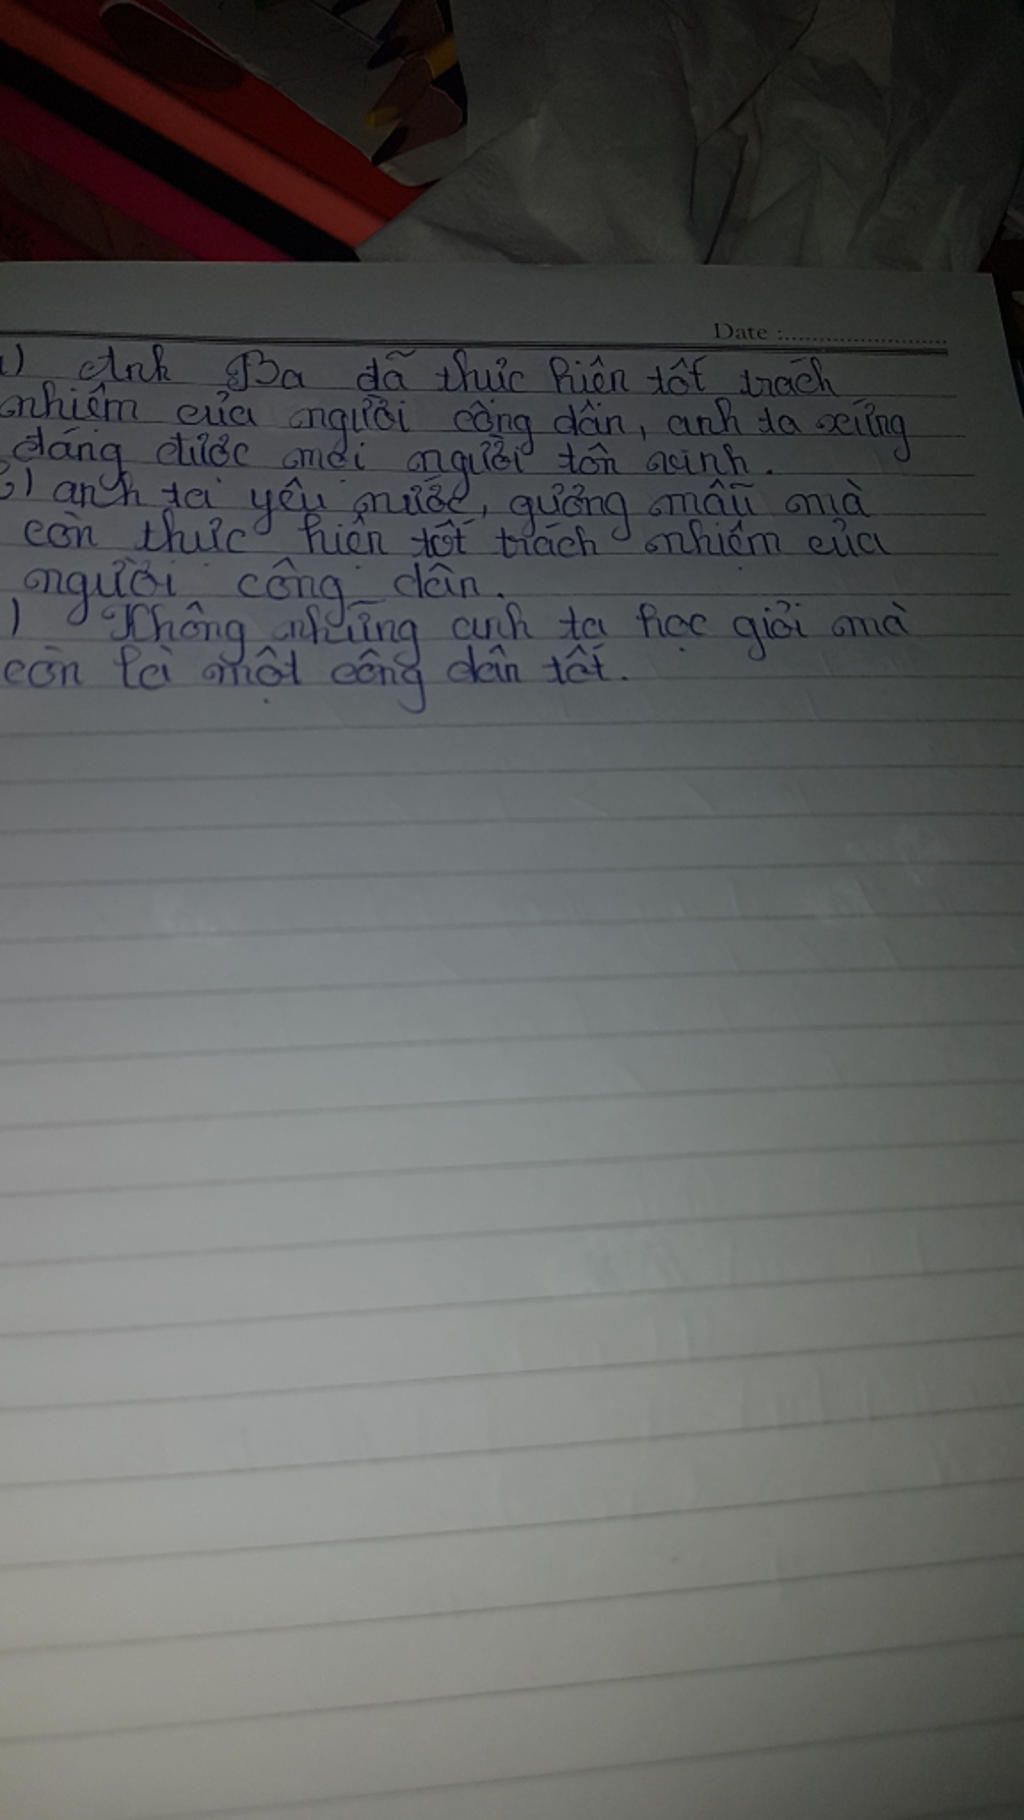 Date :
) Anh Ba đã thực hiện tốt trách
nhiệm của người công dân, anh ta xứng
đáng được mọi người tôn vinh.
) anh ta yêu nước, gương mẫu mà
còn thực hiện tốt trách nhiệm của
người công dân.
) Không những anh ta học giỏi mà
còn là một công dân tốt.